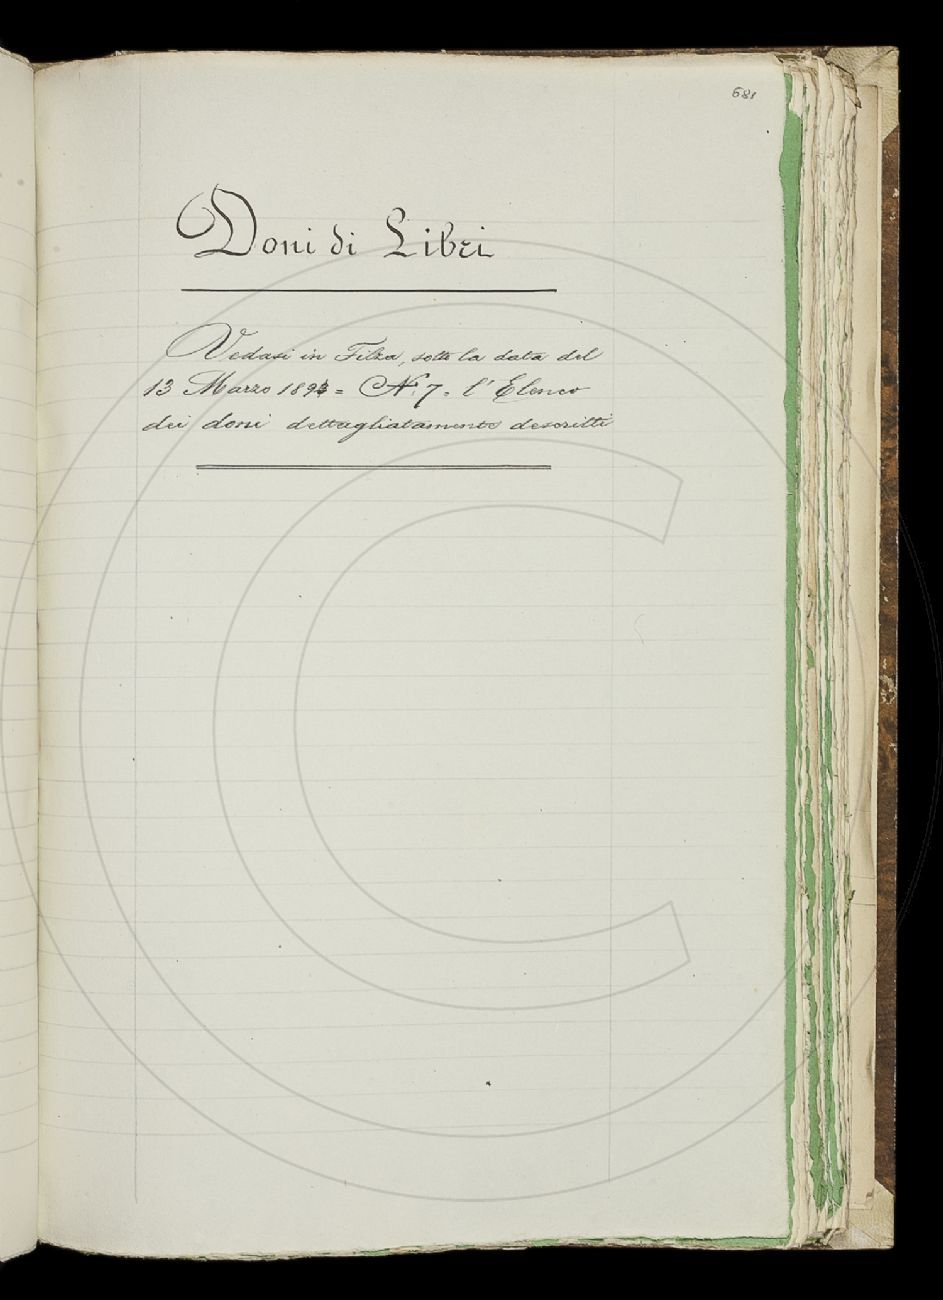 681
Doni di Libri
Vedasi in Filza, sotto la data del
13 Marzo 1893 = N.º 7. l'Elenco
dei doni dettagliatamente descritti